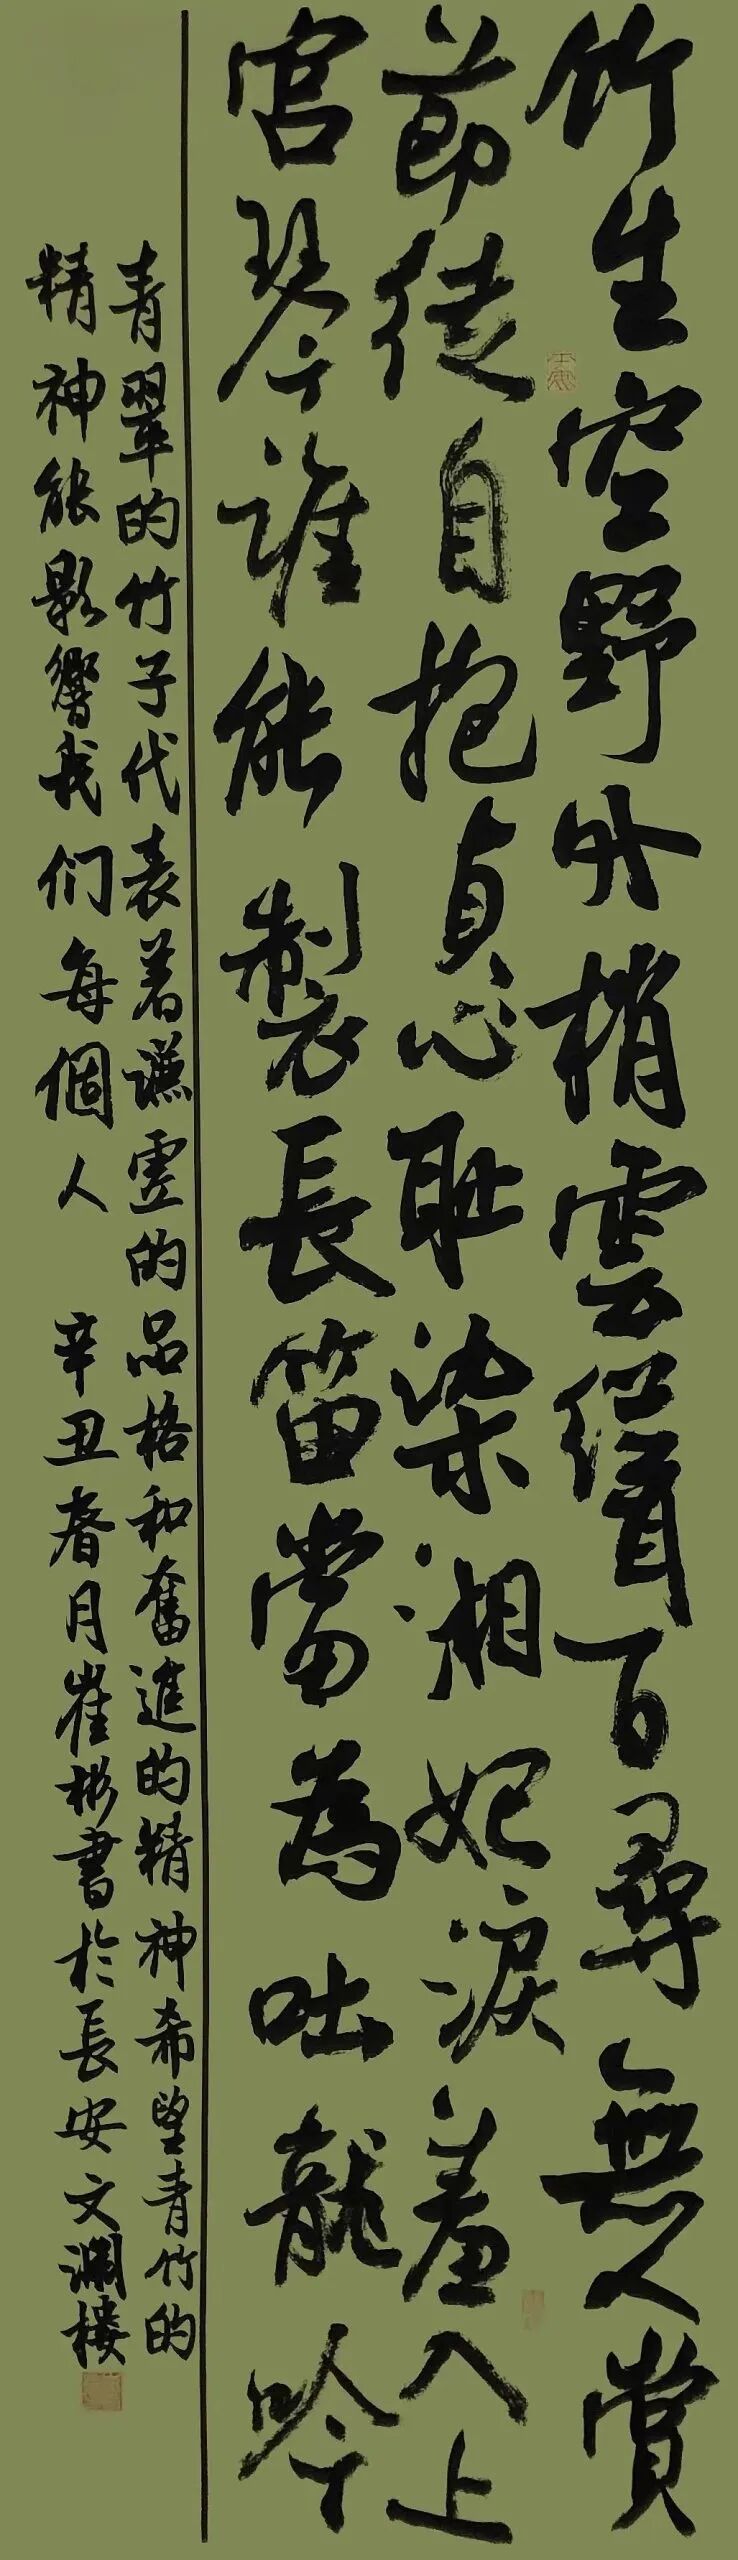 竹生空野外梢雲聳百尋無人賞
節徒自抱貞心耻染湘妃淚羞入上
宫琴誰能製長笛當為吐龍吟
青翠的竹子代表着謙虛的品格和奮進的精神希望青竹的
精神能影響我们每個人 辛丑春月崔彬書於長安文淵樓